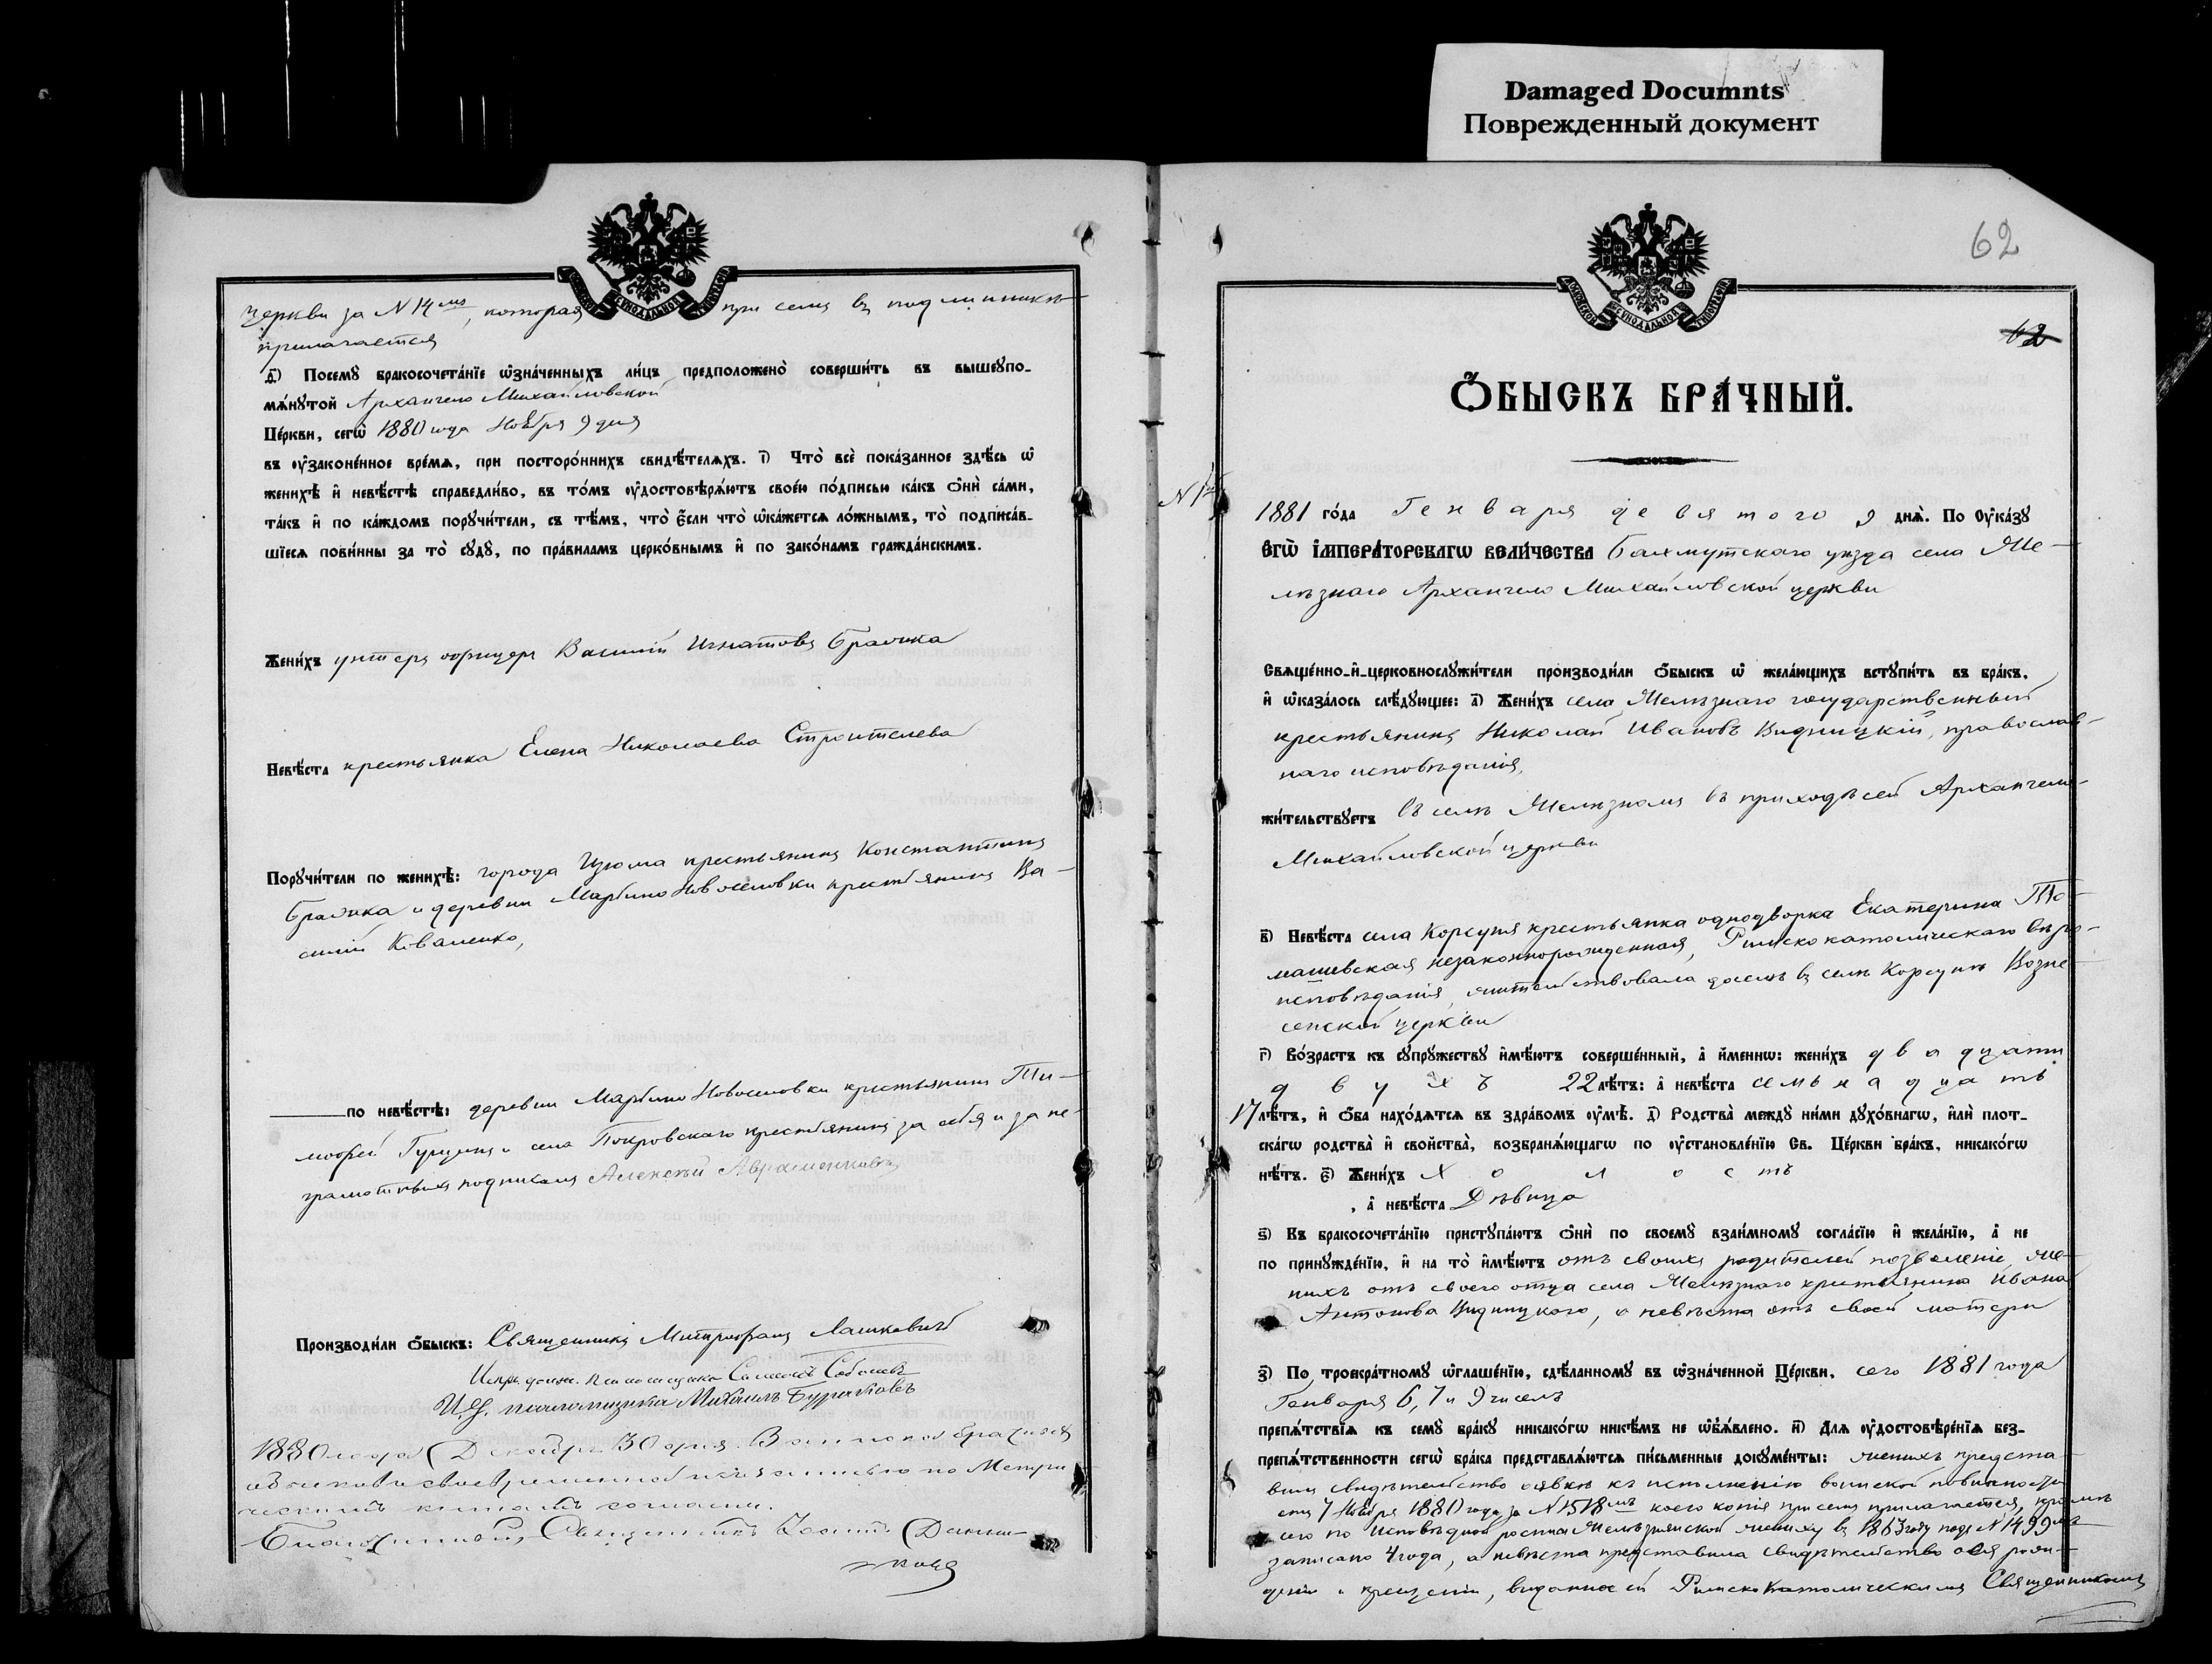 Damaged Documnts
Поврежденный документ
церкви за N 14мъ, которая при семъ въ подлинникѣ
прилагается
Ѳ) Посемꙋ бракосочета́нїе ѡ҆зна́ченныхъ ли́цъ предположено̀ соверши́ть въ вышеꙋпо-
мѧ́нꙋтой Архангело Михайловской
Це́ркви, сегѡ̀ 1880 года Ноября 9 дня
въ ᲂу҆зако́не́нное вре́мѧ, при посторо́ннихъ свидѣ́телѧхъ. І) Что̀ всѐ пока́занное здѣ́сь ѡ҆
женихѣ̀ и҆ невѣ́стѣ справедли́во, въ то́мъ ᲂу҆достовѣрѧ́ютъ свое́ю по́дписью ка́къ ѻ҆нѝ са́ми,
та́къ и҆ по ка́ждомъ порꙋчи́тели, съ тѣ́мъ, что̀ є҆́сли что̀ ѡ҆ка́жетсѧ ло́жнымъ, то̀ подписа́в-
шїесѧ пови́нны за то̀ сꙋдꙋ̀, по пра́виламъ церко́внымъ и҆ по зако́намъ гражда́нскимъ.
Жени́хъ унтеръ офицеръ Василій Игнатовъ Бражка
Невѣ́ста крестьянка Елена Николаева Строителева
Порꙋчи́тели по женихѣ̀: города Изюма крестьянинъ Константинъ
Бражка и деревни Марьино Новоселовки крестьянинъ Ва-
силій Коваленко,
по невѣ́стѣ: деревни Марьино Новоселовки крестьянинъ Ти-
моѳей и села Покровскаго крестьянинъ за себя и за не-
грамотныхъ подписался Алексѣй Авраменковъ
Производи́ли ѻ҆́быскъ: Священникъ Митрофанъ Лашкевичъ
Испр. долж. псаломщика Соболевъ
И.д. псаломщика Михаилъ Бурчаковъ
1880 года Декабря 30 дня
Благочинный, Священникъ Іоаннъ
62
62
Ѻ҆́БЫСКЪ БРА́ЧНЫЙ.
N 1й
1881 го́да Генваря девятого 9 днѧ̀. По Оу҆ка́зꙋ
Є҆гѡ̀ І҆мпера́торскагѡ Вели́чества Бахмутскаго уѣзда села Же-
лѣзнаго Архангело Михайловской церкви
Свѧще́нно-и҆-церковнослꙋжи́тели производи́ли ѻ҆́быскъ ѡ҆ жела́ющихъ встꙋпи́ть въ бра́къ,
и҆ ѡ҆каза́лось слѣ́дꙋющее: а҃) Жени́хъ села Желѣзнаго государственный
крестьянинъ Николай Ивановъ Видницкій, православ-
наго исповѣданія,
жи́тельствꙋетъ въ селѣ Желѣзномъ въ приходѣ сей Архангело-
Михайловской церкви
в҃) Невѣ́ста села Корсуня крестьянка однодворка Екатерина То-
машевская незаконнорожденная, Римскокатолическаго вѣро-
исповѣданія, жительствовала доселѣ въ селѣ Корсунѣ Возне-
сенской церкви
г҃) Во́зрастъ къ сꙋпрꙋ́жествꙋ и҆мѣ́ютъ соверше́нный, а҆ и҆́меннѡ: жени́хъ двадцати
двухъ 22 лѣ́тъ: а҆ невѣ́ста семьнадцать
17 лѣ́тъ, и҆ ѻ҆́ба нахо́дѧтсѧ въ здра́вомъ ᲂу҆мѣ̀. д҃) Родства̀ междꙋ̀ ни́ми дꙋхо́внагѡ, и҆лѝ плот-
ска́гѡ родства̀ и҆ сво́йства̀, возбранѧ́ющагѡ по ᲂу҆становле́нїю Св. Це́ркви бра́къ, никако́гѡ
нѣ́тъ. є҃) Жени́хъ Холостъ
, а҆ невѣ́ста Дѣвица
ѕ҃) Къ бракосочета́нїю пристꙋпа́ютъ ѻ҆нѝ по своемꙋ̀ взаи́мномꙋ согла́сїю и҆ жела́нїю, а҆ не
по принꙋжде́нїю, и҆ на то̀ и҆мѣ́ютъ отъ своихъ родителей позволеніе, же-
нихъ отъ своего отца села Желѣзнаго крестьянина Ивана
Антонова Видницкаго, а невѣста отъ своей матери
з҃) По троекра́тномꙋ ѡ҆глаше́нїю, сдѣ́ланномꙋ въ ѡ҆зна́ченной Це́ркви, сего 1881 года
Генваря 6, 7 и 9 чиселъ
препѧ́тствїѧ къ семꙋ̀ бра́кꙋ никако́гѡ никѣ́мъ не ѡ҆б̾ѧ́влено. и҃) Длѧ ᲂу҆достовѣре́нїѧ без-
препѧ́тственности сегѡ̀ бра́ка представлѧ́ютсѧ пи́сьменные докꙋме́нты: женихъ предста-
вилъ свидѣтельство о явкѣ къ исполненію воинской повинности
отъ 7 Ноября 1880 года за N 1518мъ коего копія при семъ прилагается, кромѣ
сего по исповѣдной росписи Желѣзнянской жениху въ 1863 году подъ N 1499мъ
записано 4 года, а невѣста представила свидѣтельство о ея рож-
деніи и крещеніи, выданное ей Римско Католическимъ Священникомъ